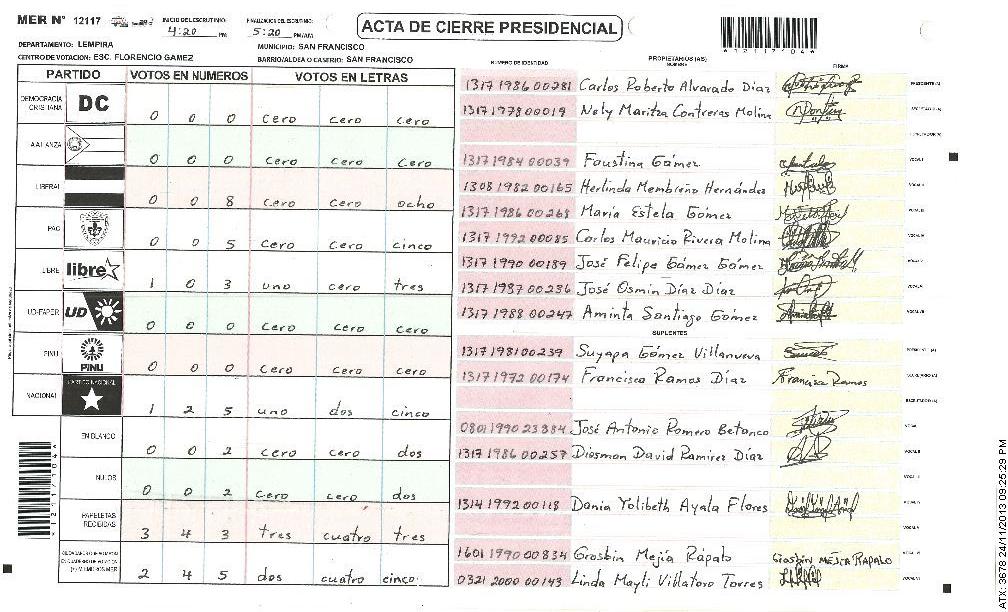 MER N° 12117
INICIO DEL ESCRUTINIO:
4:20 PM
FINALIZACION DEL ESCRUTINIO:
5:20 PM/AM
ACTA DE CIERRE PRESIDENCIAL
DEPARTAMENTO: LEMPIRA
MUNICIPIO: SAN FRANCISCO
CENTRO DE VOTACION: ESC. FLORENCIO GAMEZ
BARRIO/ALDEA O CASERIO: SAN FRANCISCO
PARTIDO VOTOS EN NUMEROS VOTOS EN LETRAS
DEMOCRACIA CRISTIANA DC 0 0 0 cero cero cero
ALIANZA 0 0 0 cero cero cero
LIBERAL 0 0 8 cero cero ocho
PAC 0 0 5 cero cero cinco
LIBRE libre 1 0 3 uno cero tres
UD-FAPER UD 0 0 0 cero cero cero
PINU PINU 0 0 0 cero cero cero
NACIONAL PARTIDO NACIONAL 1 2 5 uno dos cinco
EN BLANCO 0 0 2 cero cero dos
NULOS 0 0 2 cero cero dos
PAPELETAS RECIBIDAS 3 4 3 tres cuatro tres
2 4 5 dos cuatro cinco
NUMERO DE IDENTIDAD
PROPIETARIOS (AS)
NOMBRE
FIRMA
1317 1986 00281 Carlos Roberto Alvarado Diaz
1317 1978 00019 Nely Maritza Contreras Molina
1317 1984 00039 Faustina Gámez
1308 1982 00165 Herlinda Membreño Hernández
1317 1986 00268 María Estela Gómez
1317 1992 00085 Carlos Mauricio Rivera Molina
1317 1990 00189 José Felipe Gámez Gámez
1317 1987 00236 José Osmin Díaz Díaz
1317 1988 00247 Aminta Santiago Gómez
SUPLENTES
1317 1981 00239 Suyapa Gómez Villanueva
1317 1972 00174 Francisca Ramos Díaz Francisca Ramos
0801 1990 23884 José Antonio Romero Betanco
1317 1986 00257 Diosman David Ramirez Díaz
1314 1992 00118 Dania Yolibeth Ayala Flores
1601 1990 00834 Grosbin Mejía Rápalo Grosbin MEJIA RAPALO
0321 2000 00143 Linda Mayli Villatoro Torres
ATX: 3678 24/11/2013 09:25:29 PM